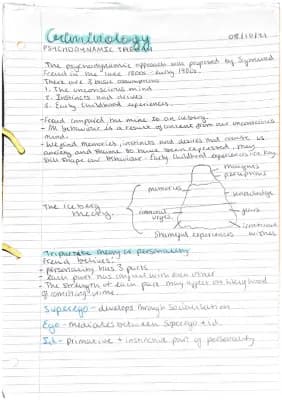 Criminology
08/10/21
PSYCHODYNAMIC THEORY
The psychodynamic approach was proposed by Sigmund
Freud in the late 1800s - early 1900s.
There are 3 basic assumptions
1. The unconscious mind
2. Instincts and drives
3. Early Childhood experiences.
- Freud compared the mind to an iceberg.
- All behaviour is a result of content from our unconscious
mind.
- We find memories, instincts and desires that cause us
anxiety and trauma to have been expressed, they
still shape our behaviour. Early childhood experiences are key.
thoughts
perceptions
memories
knowledge
The iceberg
theory.
immoral
urges
fears
Shameful experiences
irrational
wishes
Tripartate theory of personality
Freud believes:
- personality has 3 parts
- Each parts has conflict with each other
- The strength of each part may affect on likelyhood
of commiting crime.
Superego - develops through Socialisation
Ego - mediates between Superego + id
Id - Primative + instinctive part of personality